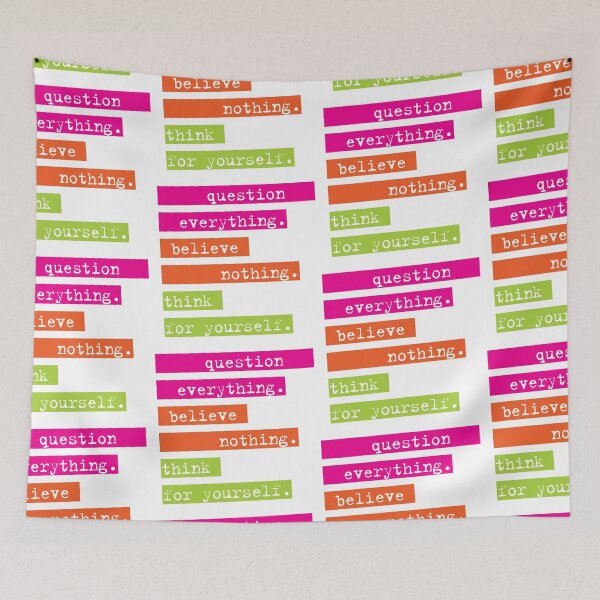 yourself.
question
erything.
ieve
nothing.
nk
yourself.
question
erything.
lieve
nothing.
nk
yourself.
question
erything.
lieve
nothing.
believe
nothing.
think
for yourself.
question
everything.
believe
nothing.
think
for yourself.
question
everything.
believe
nothing.
think
for yourself.
for yourself.
question
everything.
believe
nothing.
think
for yourself.
question
everything.
believe
nothing.
think
for yourself.
question
everything.
believe
nothing.
believe
no
think
for yourself.
ques
everyth
believe
no
think
for yourself.
ques
everyth
believe
no
think
for yourself.